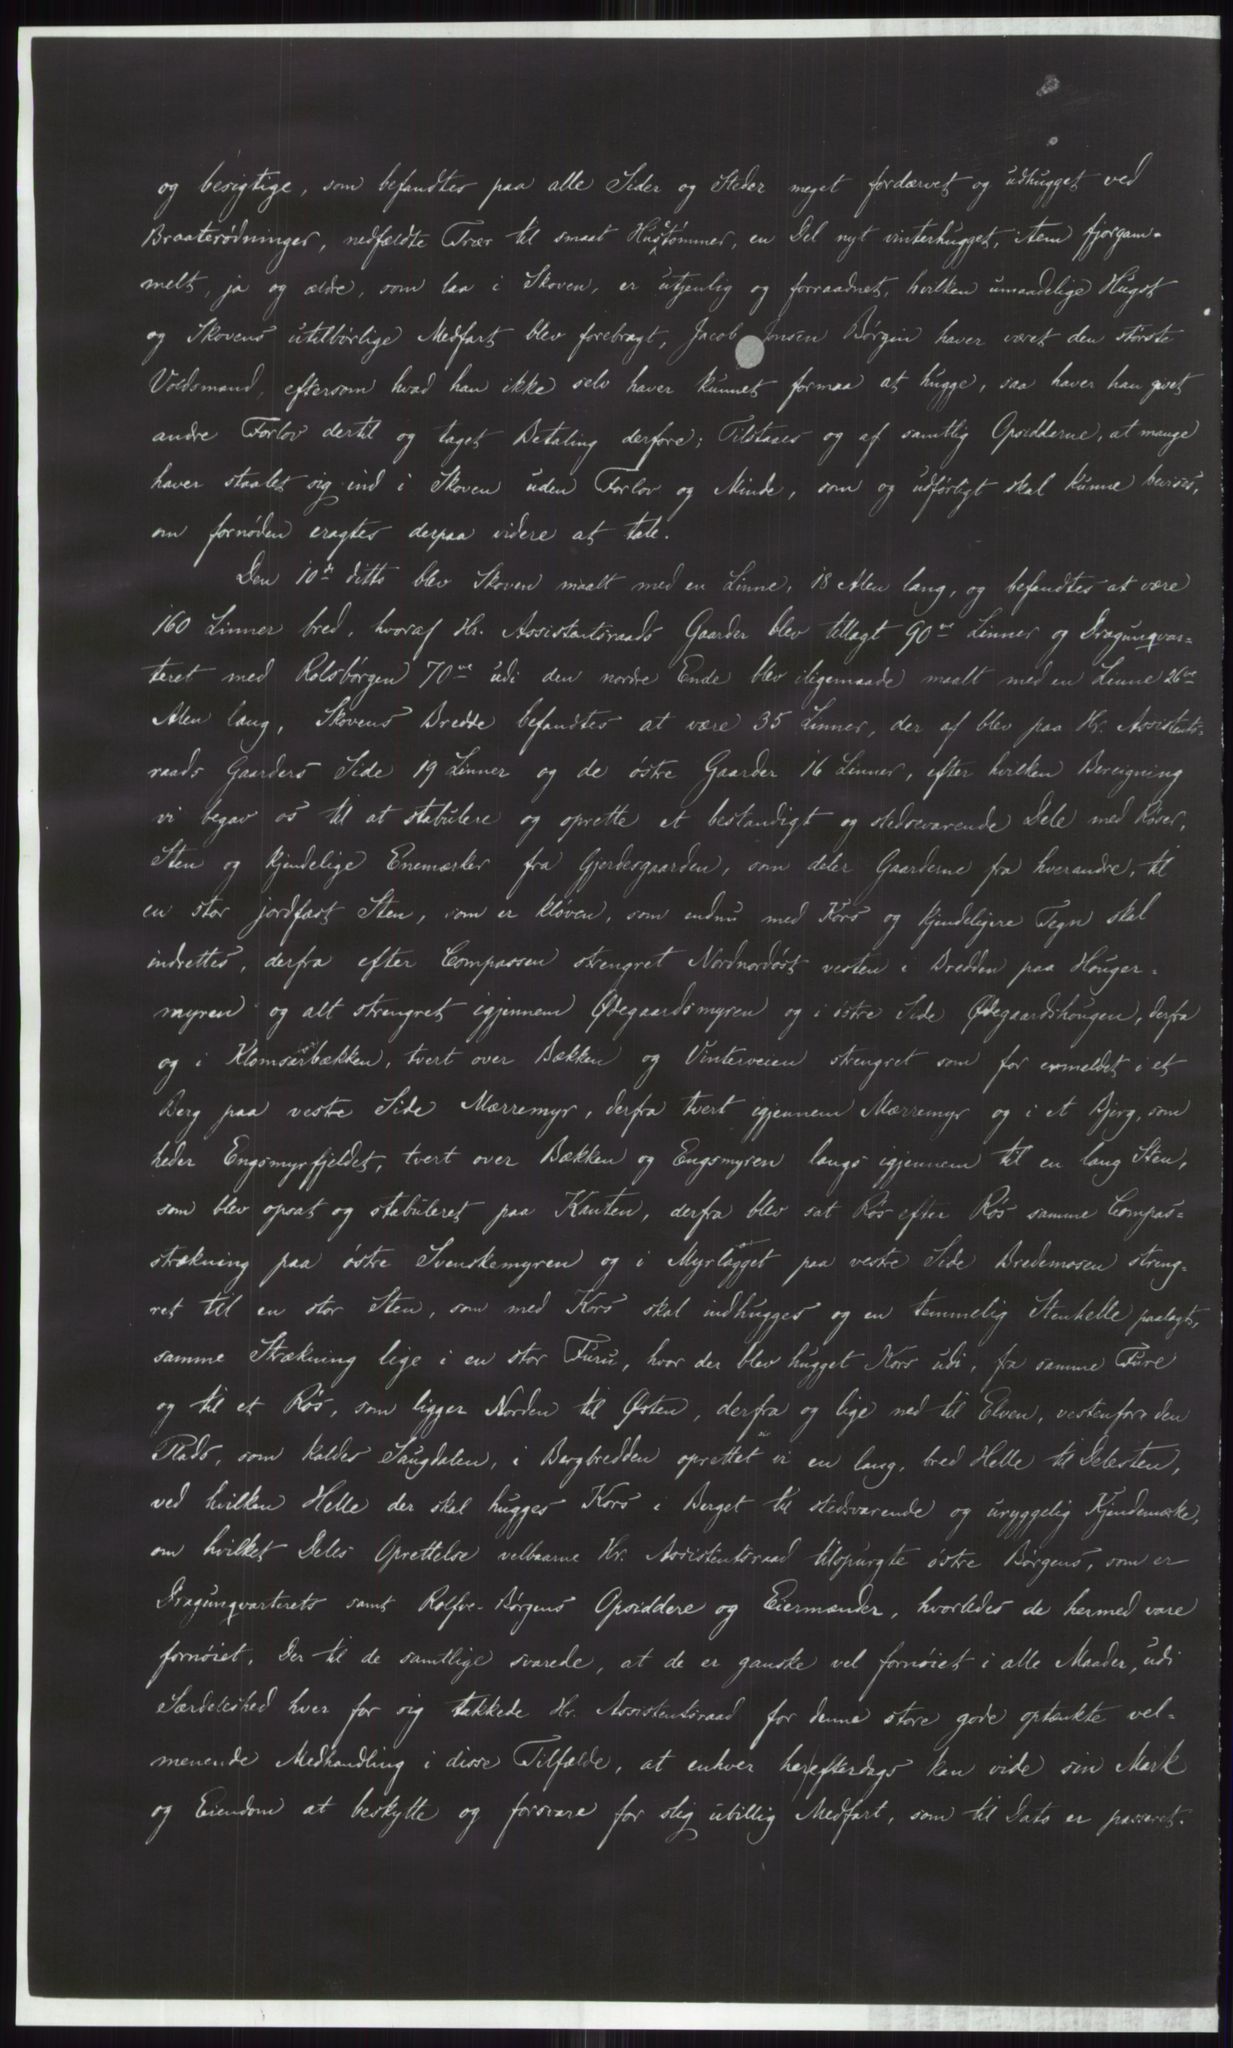 og besigtige, som befandtes paa alle Sider og Steder meget fordærvet og udhugget ved
Braaterødninger, nedfældte Trær til smaat Hustømmer, en Del nyt vinterhugget, item fjorgam-
melt, ja og ældre, som laa i Skoven, er utjenlig og forraadnet, hvilken umandelige Hugst
og Skovens utilbørlige Medfart blev forebragt, Jacob Jonsen Børgin haver været den største
Voldsmand, eftersom hvad han ikke selv haver kunnet formaa at hugge, saa haver han givet
andre Forlov dertil og taget Betaling derfore; Tilstaaes og af samtlig Opsidderne, at mange
haver staalet sig ind i Skoven uden Forlov og Minde, som og udførligt skal kunne bevises,
om fornøden eragtes derpaa videre at tale.
Den 10de ditto blev Skoven maalt med en Linne, 18 Alen lang, og befandtes at være
160 Linner bred, hvoraf Hr. Assistentsraads Gaarder blev tillagt 90ve Linner og Dragunqvar-
teret med Rolsbørgen 70ve udi den nordre Ende blev iligemaade maalt med en Linne 26ve
Alen lang, Skovens Bredde befandtes at være 35 Linner, der af blev paa Hr. Assistents-
raads Gaarders Side 19 Linner og de østre Gaarder 16 Linner, efter hvilken Bereigning
vi begav os til at stabulere og oprette et bestandigt og stedsevarende Dele med Røser,
Sten og kjendelige Enemærker fra Gjerdesgaarden, som deler Gaarderne fra hverandre, til
en stor jordfast Sten, som er kløven, som endnu med Kors og kjendeligere Tegn skal
indrettes, derfra efter Compassen strengret Nordnordøst vesten i Bredden paa Houger-
myren og alt strengret igjennem Ødegaardsmyren og i østre Side Ødegaardshougen, derfra
og i Klomsærbækken, tvert over Bækken og Vinterveien strengret som for ermeldet i et
Berg paa vestre Side Mærremyr, derfra tvert igjennem Mærremyr og i et Bjerg, som
heder Engsmyrfjeldet, tvert over Bækken og Engsmyren langs igjennem til en lang Sten,
som blev opsat og stabuleret paa Kanten, derfra blev sat Røs efter Røs samme Compas-
strækning paa østre Svenskemyren og i Myrlagget paa vestre Side Bredemosen streng-
ret til en stor Sten, som med Kors skal indhugges og en temmelig Stenhelle paalagt,
samme Strækning lige i en stor Furu, hvor der blev hugget Kors udi, fra samme Fure
og til et Røs, som ligger Norden til Østen, derfra og lige ned til Elven, vestenfore den
Plads, som kaldes Saugdalen, i Bergbredden oprettet vi en lang, bred Helle til Delesten,
ved hvilken Helle der skal hugges Kors i Berget til stedsvarende og uryggelig Kjendemærke,
om hvilket Deles Oprettelse velbaarne Hr. Assistentsraad tilspurgte østre Børgens, som er
Dragunqvarterets samt Rolfve-Børgens Opsiddere og Eiermænder, hvorledes de hermed vare
fornøiet. Der til de samtlige svarede, at de er ganske vel fornøiet i alle Maader, udi
Særdeleshed hver for sig takkede Hr. Assistentsraad for denne store gode optænkte vel-
menende Medhandling i disse Tilfælde, at enhver herefterdags kan vide sin Mark
og Eiendom at beskytte og forsvare for slig ubillig Medfart, som til Dato er passeret.